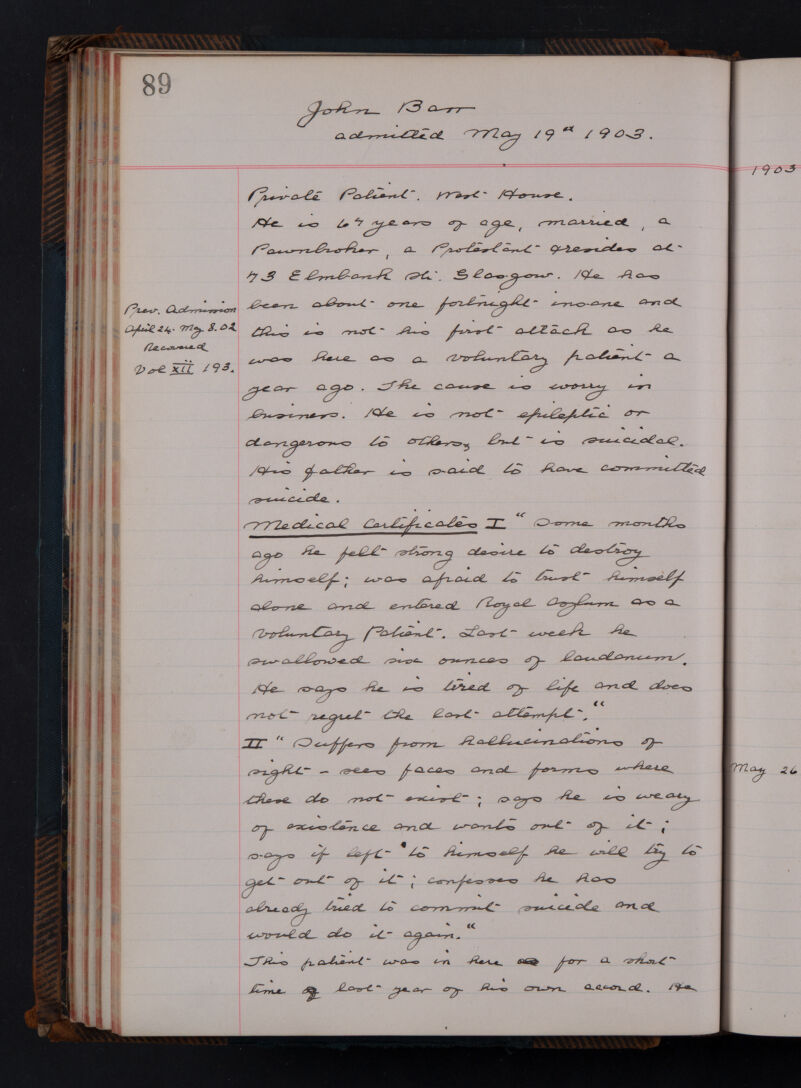 89
John Barr
admitted May 19th 1903.
1903
Private Patient. West House.
He is 67 years of age, married, a
Pawnbroker, a Protestant & resides at
73 Elmbank St. Glasgow. He has
been about one fortnight insane and
this is not his first attack as he
was here as a voluntary patient a
year ago. The cause is worry in
business. He is not epileptic or
dangerous to others, but is suicidal.
His father is said to have committed
suicide.
Prev. Admission
April 24. May 8. 02
Recovered
Vol XII 193.
Medical Certificates I "Some months
ago he felt strong desire to destroy
himself; was afraid to trust himself
alone and entered Royal Asylum as a
Voluntary Patient. Last week he
swallowed six ounces of laudanum.
He says he is tired of life and does
not regret the last attempt."
II "Suffers from hallucinations of
sight - sees faces and forms where
these do not exist; says he is weary
of existence and wants out of it;
says if left to himself he will try to
get out of it; confesses he has
already tried to commit suicide and
would do it again."
This patient was in here for a short
time last year of his own accord. He
May 26